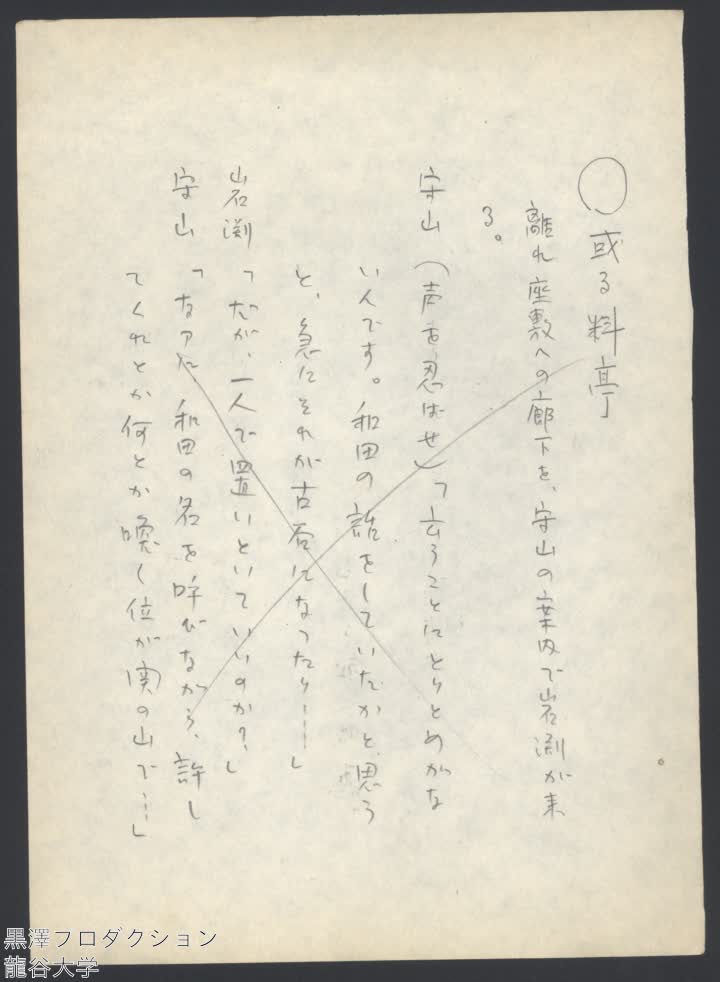 ○或る料亭
離れ座敷への廊下を、守山の案内で岩渕が来
る。
守山（声を忍ばせ）「云うことにとりとめがな
いんです。和田の話をしていたかと思う
と、急にそれが古谷になったり……」
岩渕「だが、一人で置いといていいのか？」
守山「なアに和田の名を呼びながら、許し
てくれとか何とか喚く位が関の山で…」
黒澤プロダクション
龍谷大学